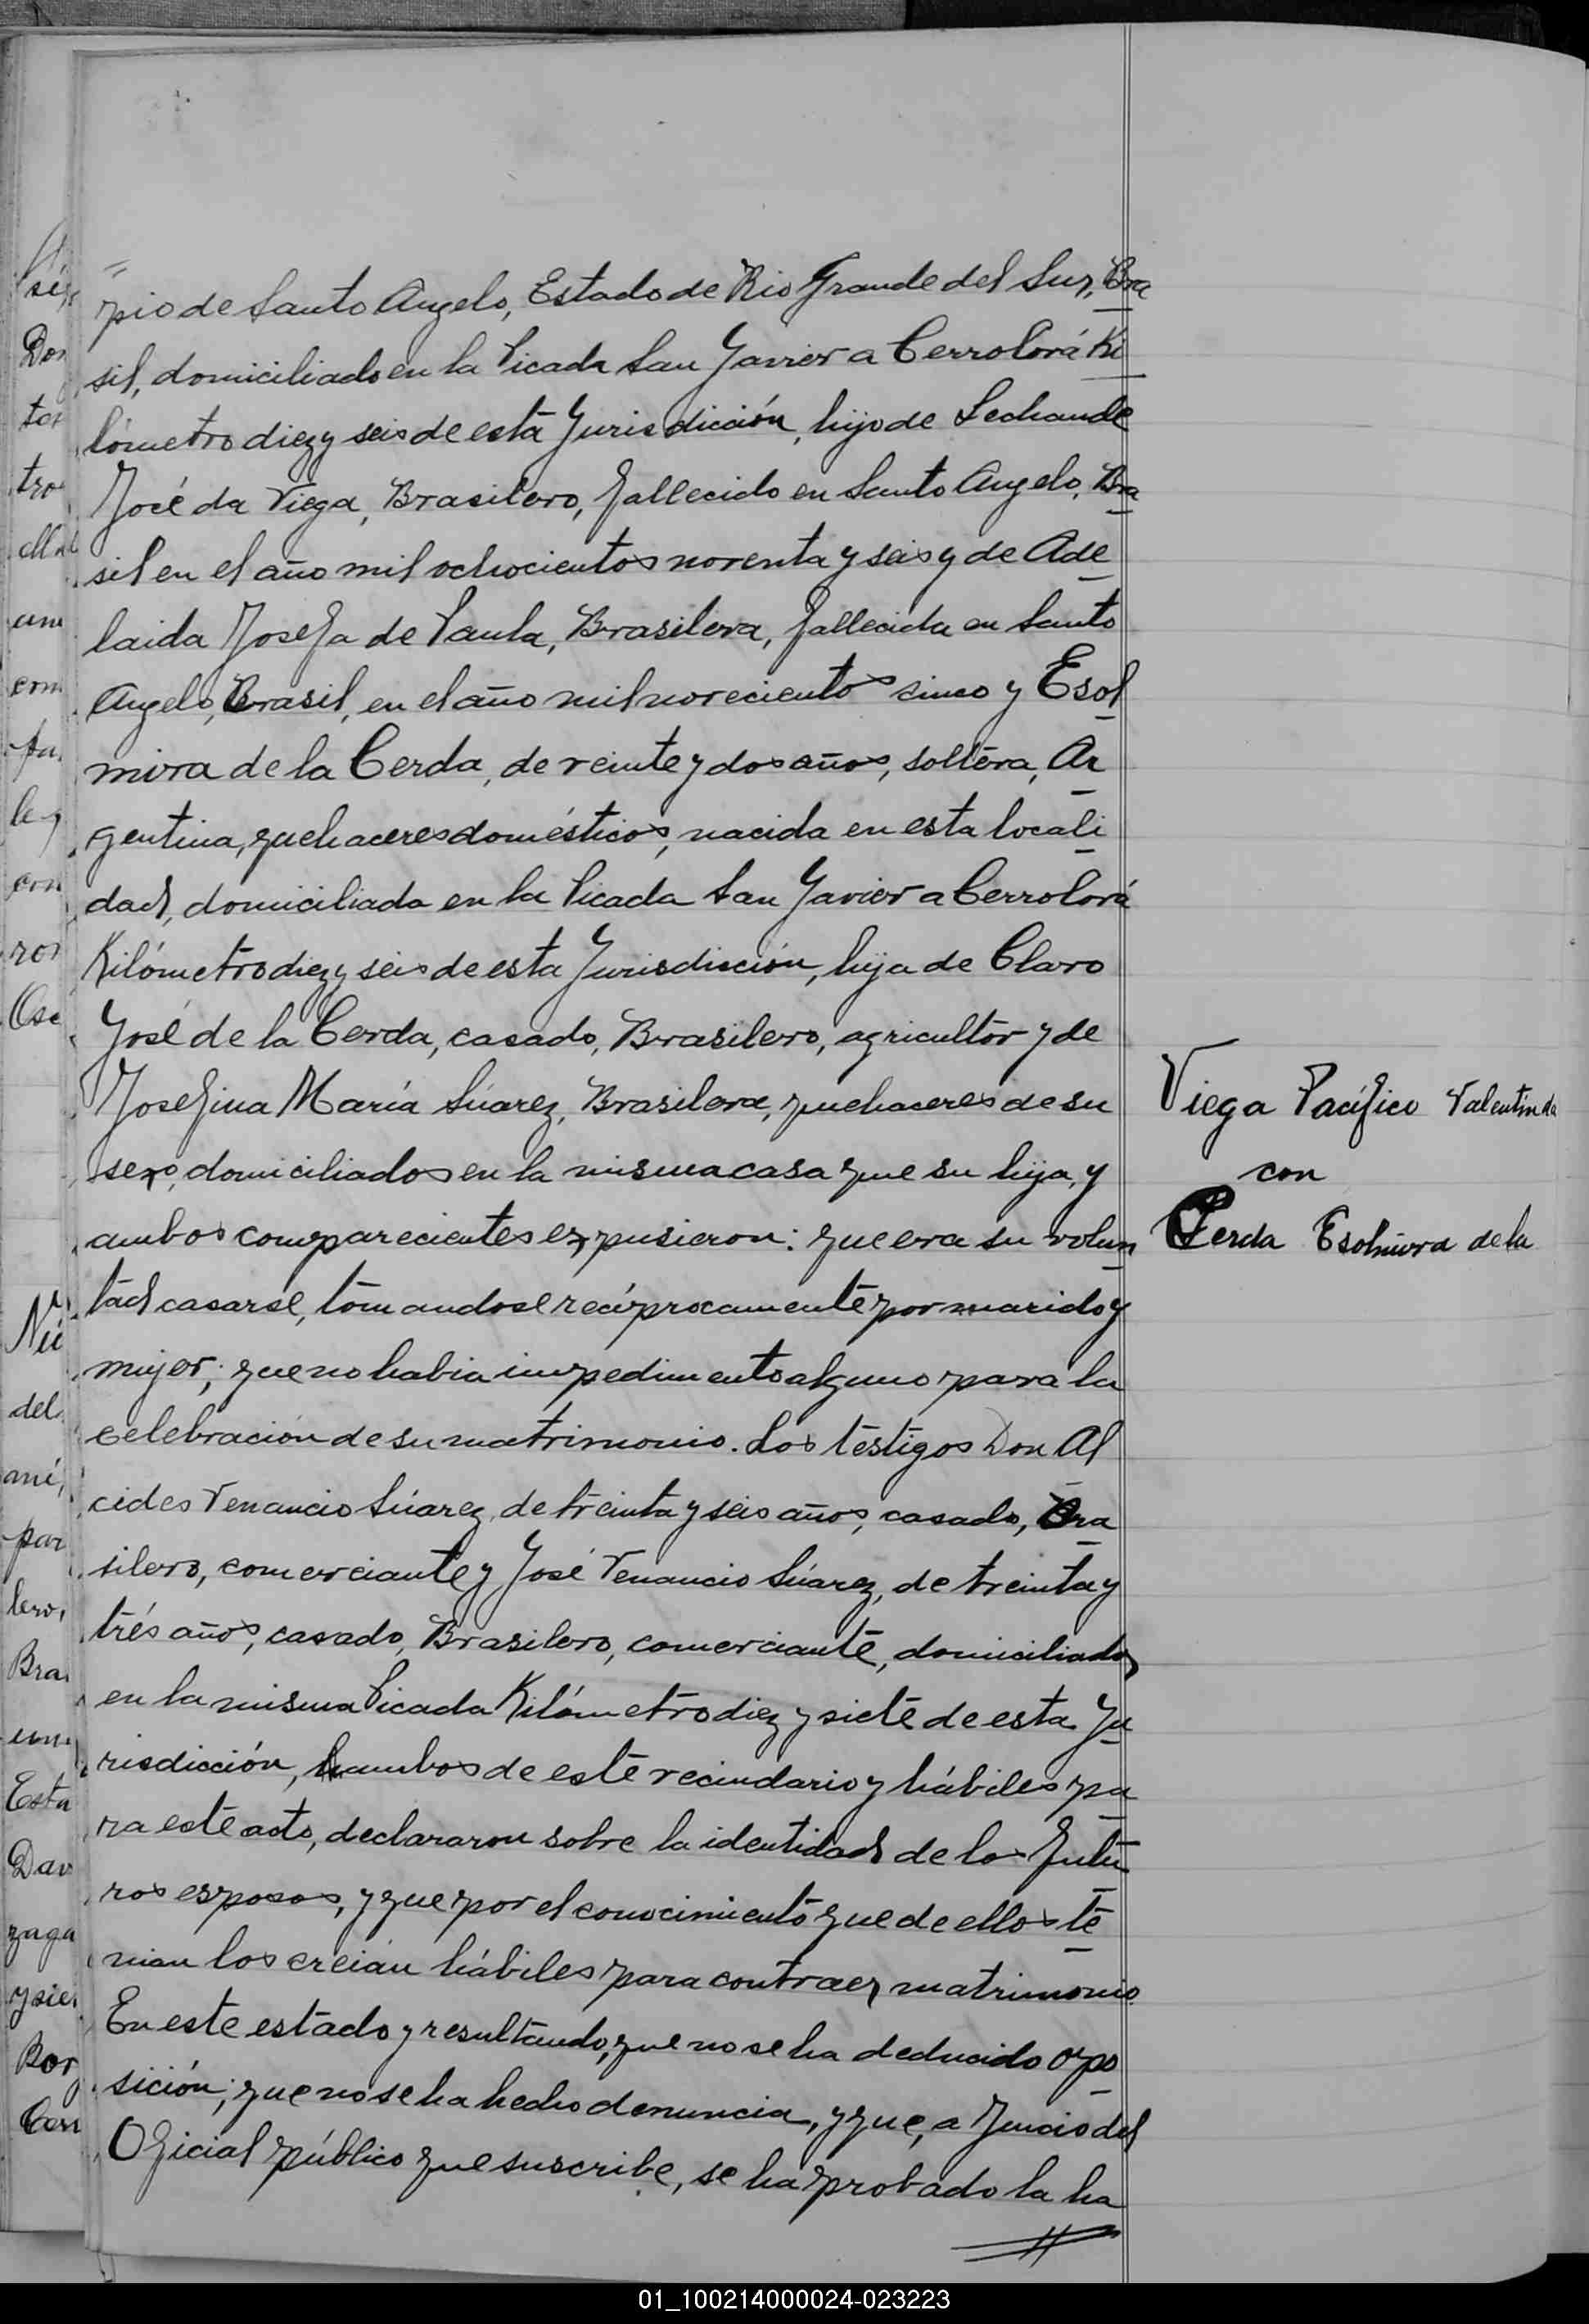 pio de Santo Angelo, Estado de Rio Grande del Sur, Bra
sil, domiciliado en la Picada San Javier a Cerro Corá Ki
lómetro diez y seis de esta Jurisdicción, hijo de
José da Viega, Brasilero, fallecido en Santo Angelo, Bra
sil en el año mil ochocientos noventa y seis y de Ade
laida Josefa de Paula, Brasilera, fallecida en Santo
Angelo, Brasil, en el año mil novecientos cinco y Esol
mira de la Cerda, de veinte y dos años, soltera, Ar
gentina, quehaceres domésticos, nacida en esta locali
dad, domiciliada en la Picada San Javier a Cerro Corá
Kilómetro diez y seis de esta Jurisdicción, hija de Claro
José de la Cerda, casado, Brasilero, agricultor y de
Josefina María Súarez, Brasilera, quehaceres de su
sexo, domiciliados en la misma casa que su hija, y
ambos comparecientes expusieron: que era su volun
tad casarse, tomandose recíprocamente por marido y
mujer; que no habia impedimento alguno para la
celebración de su matrimonio. Los testigos Don Al
cides Venancio Súarez, de treinta y seis años, casado, Bra
silero, comerciante y José Venancio Súarez, de treinta y
trés años, casado, Brasilero, comerciante, domiciliados
en la misma Picada Kilómetro diez y siete de esta Ju
risdicción, ambos de este vecindario y hábiles pa
ra este acto, declararon sobre la identidad de los futu
ros esposos, y que por el conocimiento que de ellos te
nian los creián hábiles para contraer matrimonio.
En este estado y resultando, que no se ha deducido opo
sición; que no se ha hecho denuncia, y que, a Juicio del
Oficial público que suscribe, se ha probado la ha
Viega Pacífico Valentin da
con
Cerda Esolmira de la
sig
Don
tro
am
com
fa
le y
con
ros
Ose
Ni
del
ané,
par
lero,
Bra
Esta
Dav
zaga
y sie
Bor
Cerr
01_100214000024-023223